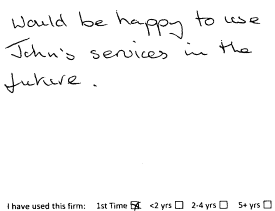 Would be happy to use
John's services in the
future.
I have used this firm: 1st Time ☒ <2 yrs ☐ 2-4 yrs ☐ 5+ yrs ☐